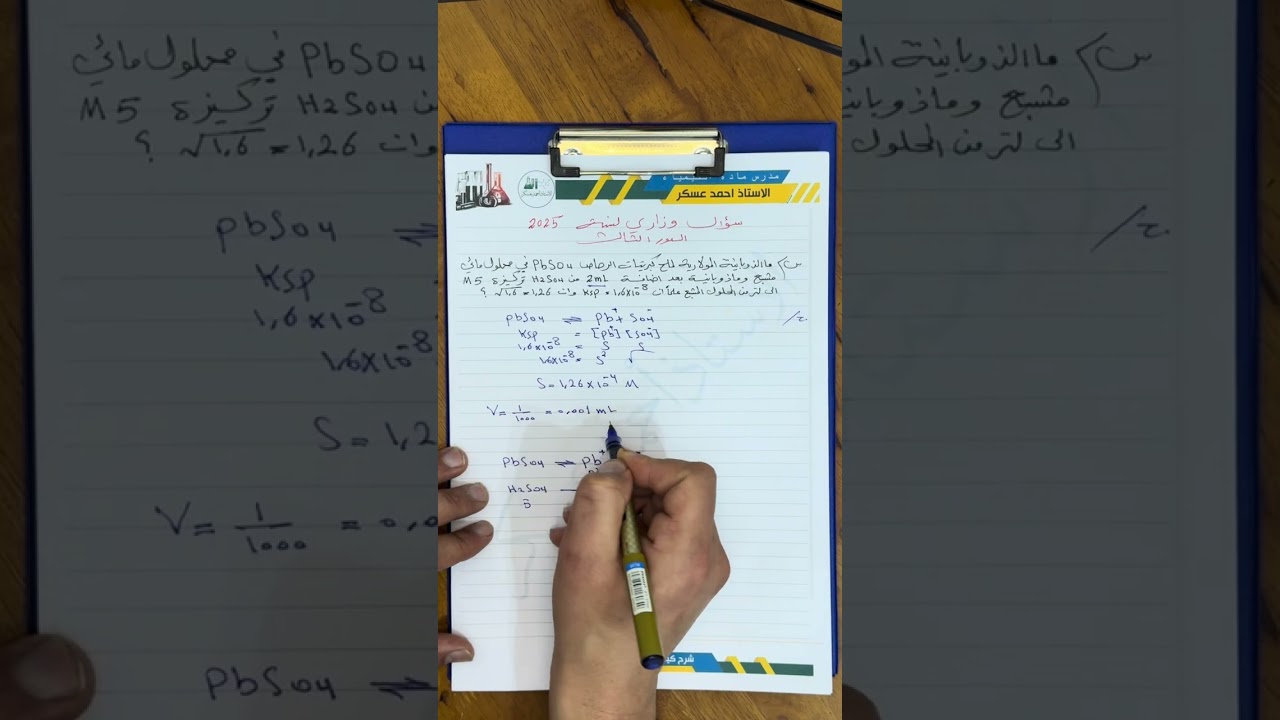 مدرس مادة الكيمياء
الاستاذ احمد عسكر
سؤال وزاري لسنة 2025
الدور الثالث
س/ ما الذوبانية المولارية لملح كبريتات الرصاص PbSO4 في محلول مائي
مشبع وماذوبانية بعد اضافة 2mL من H2SO4 تركيزة 5 M
الى لتر من المحلول المشبع علماً ان Ksp = 1,6×10⁻⁸ وان √1,6 = 1,26 ؟
ج/
PbSO4 ⇌ Pb⁺ + SO4⁻
Ksp = [Pb⁺] [SO4⁻]
1,6×10⁻⁸ = S S
1,6×10⁻⁸ = S² √
S = 1,26×10⁻⁴ M
V = 1/1000 = 0,001 mL
PbSO4 ⇌ Pb⁺
H2SO4
شرح